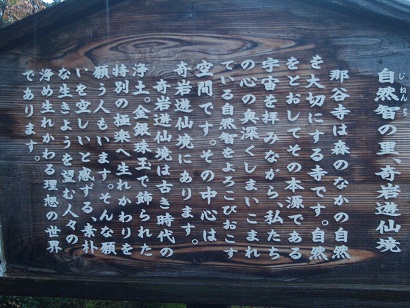 じねんち
自然智の里、奇岩遊仙境
那谷寺は森のなかの自然
を大切にする寺です。自然
をとおしてその本源である
宇宙を拝みながら、私たち
の心の奥深くしまいこまれ
ている自然智をよろこびおこす
空間です。その中心は、
奇岩遊仙境にあります。
奇岩遊仙境は古き時代の
浄土。金銀珠玉で飾られた
特別の極楽へ生れかわりを
願う人もいます。そんな願
いを空しいと感ずる、素朴
な生きようを望む人々の
浄め生れかわる理想の世界
であります。